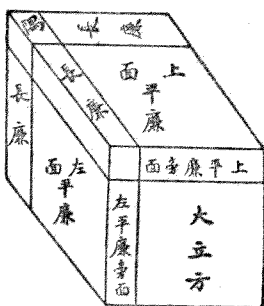 隅
長廉
上面平廉
長廉
左面平廉
上平廉旁面
左平廉旁面
大立方